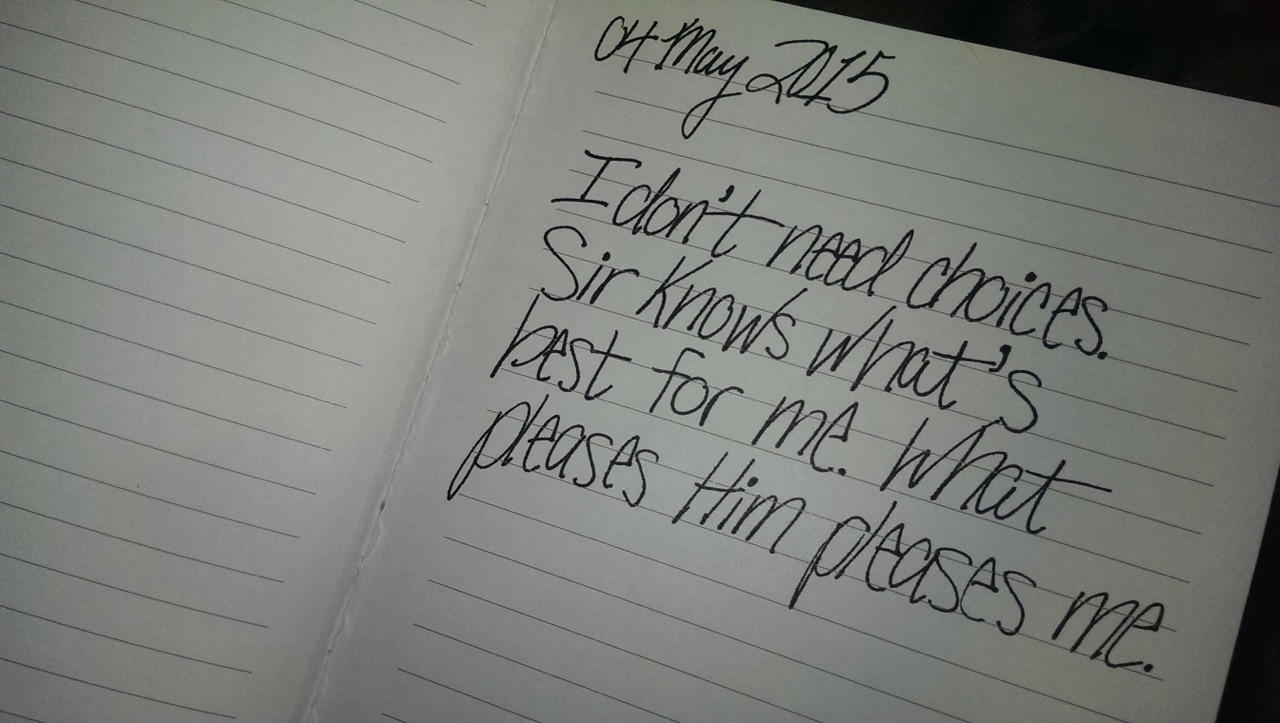 04 May 2015
I don't need choices.
Sir knows what's
best for me. What
pleases Him pleases me.